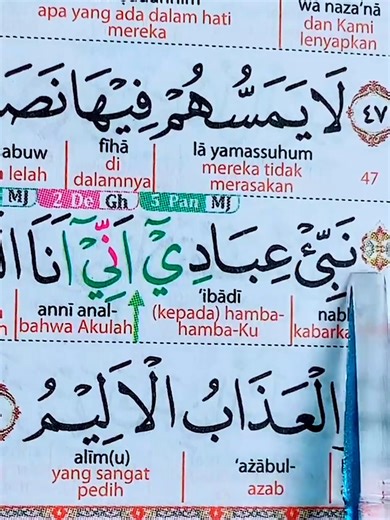 apa yang ada dalam hati mereka
wa naza‘nā
dan Kami lenyapkan
٤٧ لَا يَمَسُّهُمْ فِيْهَا
lā yamassuhum
fīhā
abuw
mereka tidak merasakan
di dalamnya
lelah
47
MJ 5 Pan Gh 2 De MJ
نَبِّئْ عِبَادِيْٓ اَنِّيْٓ اَنَا
‘ibādī
annī anal-
(kepada) hamba-hamba-Ku
bahwa Akulah
الْعَذَابُ الْاَلِيْمُ
‘ażābul-
alīm(u)
azab
yang sangat pedih